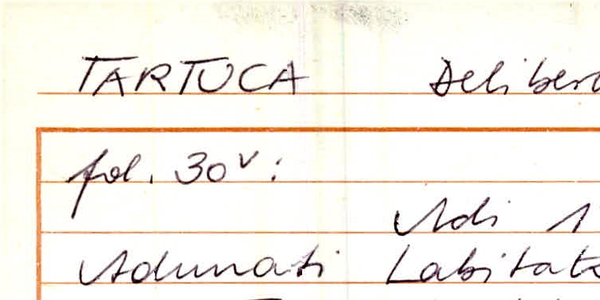 TARTUCA Deliber
fol. 30v:
Adi 1
Adunati Labitat